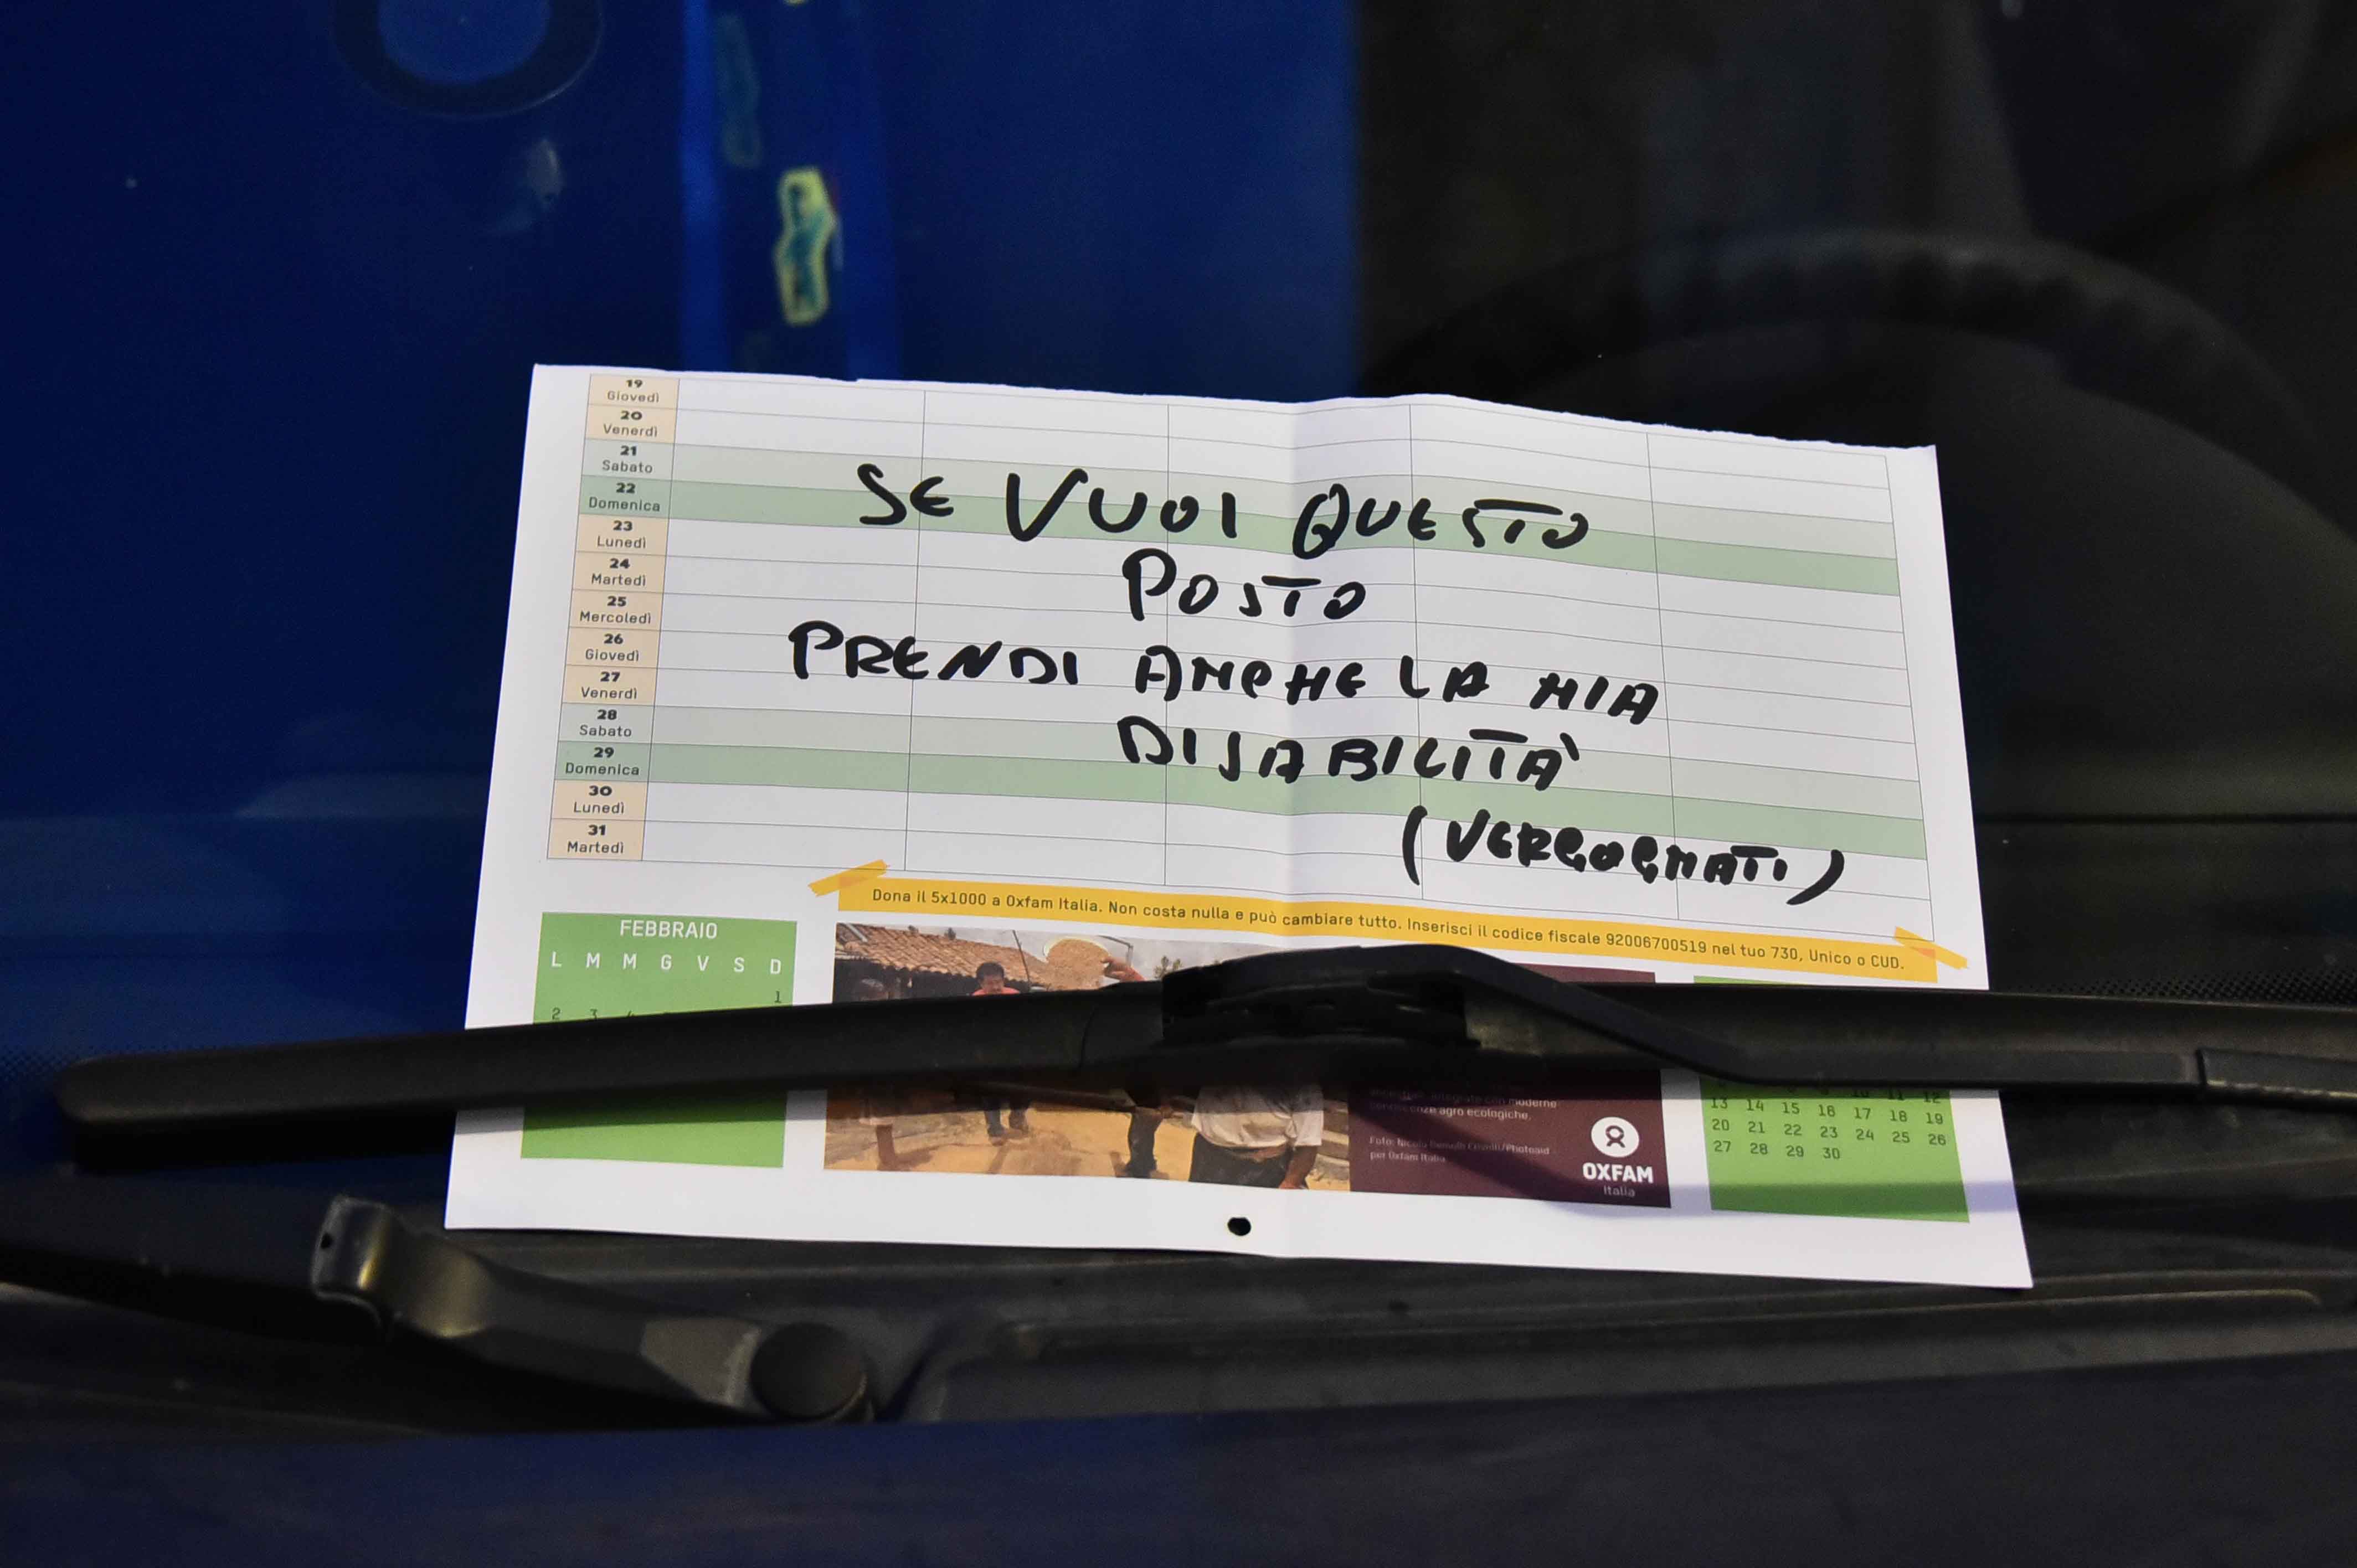 19
Giovedì
20
Venerdì
21
Sabato
22
Domenica
23
Lunedì
24
Martedì
25
Mercoledì
26
Giovedì
27
Venerdì
28
Sabato
29
Domenica
30
Lunedì
31
Martedì
SE VUOI QUESTO
POSTO
PRENDI ANCHE LA MIA
DISABILITÀ
(VERGOGNATI)
Dona il 5x1000 a Oxfam Italia. Non costa nulla e può cambiare tutto. Inserisci il codice fiscale 92006700519 nel tuo 730, Unico o CUD.
FEBBRAIO
L M M G V S D
1
2 3
integrate con moderne
agro ecologiche.
Foto:
per Oxfam Italia
OXFAM
Italia
10 11 12
13 14 15 16 17 18 19
20 21 22 23 24 25 26
27 28 29 30